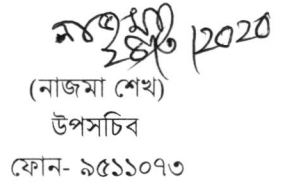 (নাজমা শেখ)
উপসচিব
ফোন- ৯৫১১০৭৩